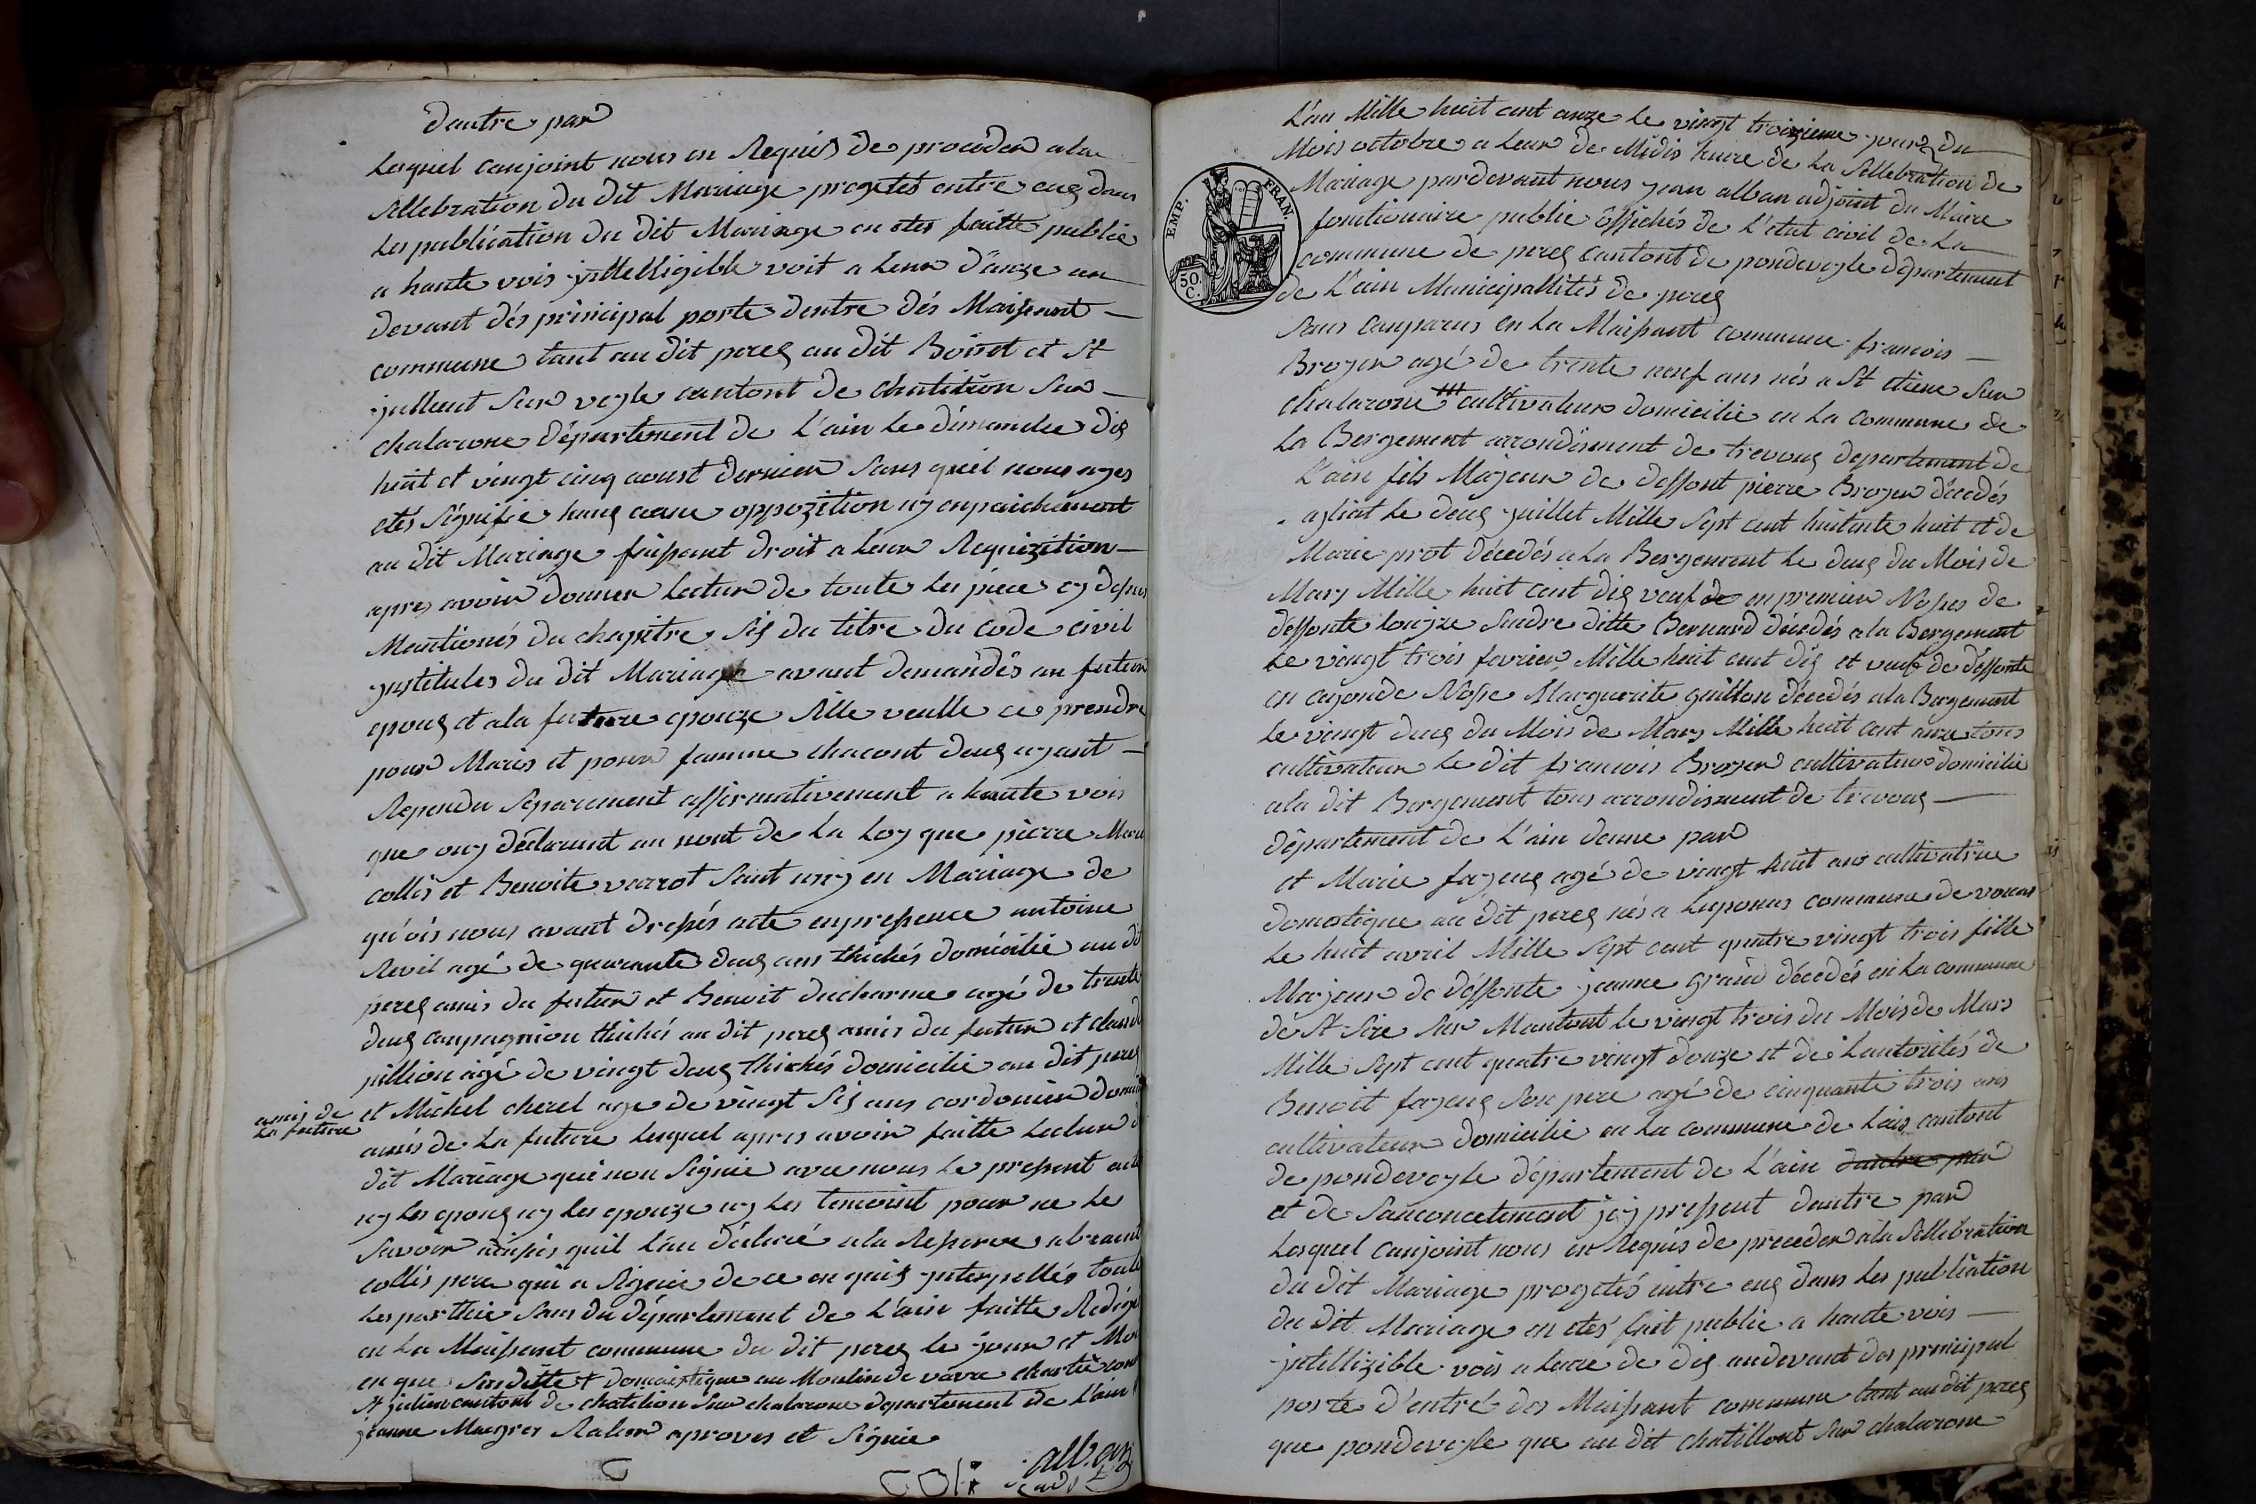 dautre par
Lequel conjoint nous en Requis de proceder a la
Sellebration du dit Mariage progetes entre eus dans
Les publication du dit Mariage on etes faitte publie
a haute vois ynttelligible voit a Leur d'anze au
devant des principal porte dentre des Maisont
commune tant au dit perex au dit Boisset et St
jullient Sur veyle cantont de chatition Sur
chalarone département de L'ain Le dimanche dix
huit et vingt cinq aoust dernier Sans quil nous ayes
etés Signifie haus cune oppozition ny enpaichement
au dit Mariage faissant droit a Leur Requizition
apres avoir donner Lectur de toute Les piece cy desus
Mantionés du chapitre Six du titre du code civil
ynstitules du dit Mariage avant demandés au futur
epoux et a la future epouze Sille veulle ce prendre
pour Maris et pour famme chacont deux ayant
Repondu Separement affirmativement a haute vois
que ouy déclarant au nont de La Loy que pierre Marie
collis et Benoite varrot Sont uny en Mariage de
qu'ois nous avant dressés acte enpressence antoine
Revil agé de quarante deux ans thichés domicilie au dit
perex amis du futur et Benoit ducharme agé de trente
deux canpagnion thichés au dit perex amis du futur et claude
pillion agé de vingt deux thichés domicilie au dit perex
amis de La future
et Michel cherel age de vingt Six ans cordonier domi
amis de La future Lequel apres avoir faitte Lectur d
dit Mariage qui non Signie avec nous Le pressent acte
ny Les epoux ny Les epouze ny Les temoint pour ne Le
Savoir ainsis quil L'an déclaré a la Reserve abraam
collis pere qui a Signie de ce en quis ynterpellés toute
Les parthie Sans du département de L'ain faitte Redigé
en La Maissont commune du dit perex le jour et Mois
en que Sur ditte + domaistique au Moulin de vavre
St julien cantont de chatilion Sur chalarone departement de L'ain
jeanne aproves et Signie
coli alban adj
L'an Mille huit cent onze Le vingt troizieme jours du
Mois octobre a Leur de Midis heure de La Sellebration de
Mariage pardevant nous jean alban adjoint du Maire
EMP. FRAN. 50. C.
fontionaire public offichés de L'etat civil de La
commune de perex Cantont de pondeveyle département
de L'ain Municipallités de perex
Sans conparus en La Maissont commune francois
Broyer agé de trente neuf ans nés a St etiene Sur
chalarone cultivateur domicilie en La commune de
La Bergement arrondisment de trevoux departement de
L'ain fils Majeur de deffont pierre Broyer décedés
a Liat Le deux juillet Mille Sept cent huitante huit et de
Marie prot décedés a La Bergement Le deux du Mois de
Mars Mille huit cent dix veuf de en premier Nosses de
deffonte Louize Sandre ditte Bernard décedés a la Bergement
Le vingt trois fevrier Mille huit cent dix et veuf de deffonte
en cegonde Nosse Marguerite guillon décedés a la Bergement
Le vingt deux du Mois de Mars Mille huit cent onze tous
cultivateur Le dit francois Broyer cultivateur domicilie
a la dit Bergement tous arrondisment de trevoux
département de L'ain dunne par
et Marie fayeux agé de vingt huit ans cultivatrice
domestique au dit perex nés a Luponnas commune de vonnas
Le huit avril Mille Sept cent quatre vingt trois fille
Majeur de deffonte jeanne grand décedés en La commune
de St Sire Sur Mantont Le vingt trois du Mois de Mars
Mille Sept cent quatre vingt douze et de Lautorités de
Benoit fayeux Son pere agé de cinquante trois ans
cultivateur domicilie en La commune de Lais cantont
de pondeveyle département de L'ain dautre par
et de Sanconcetement icy pressent dautre par
Lesquel conjoint nous en Requis de proceder a la Sellebration
du dit Mariage progetés entre eux dans Les publication
du dit Mariage on etés fait public a haute vois
jntelligible vois a Leure de dix audevant des principal
porte d'entré des Maissant commune tant au dit perex
que pondeveyle que au dit chatillont Sur chalarone